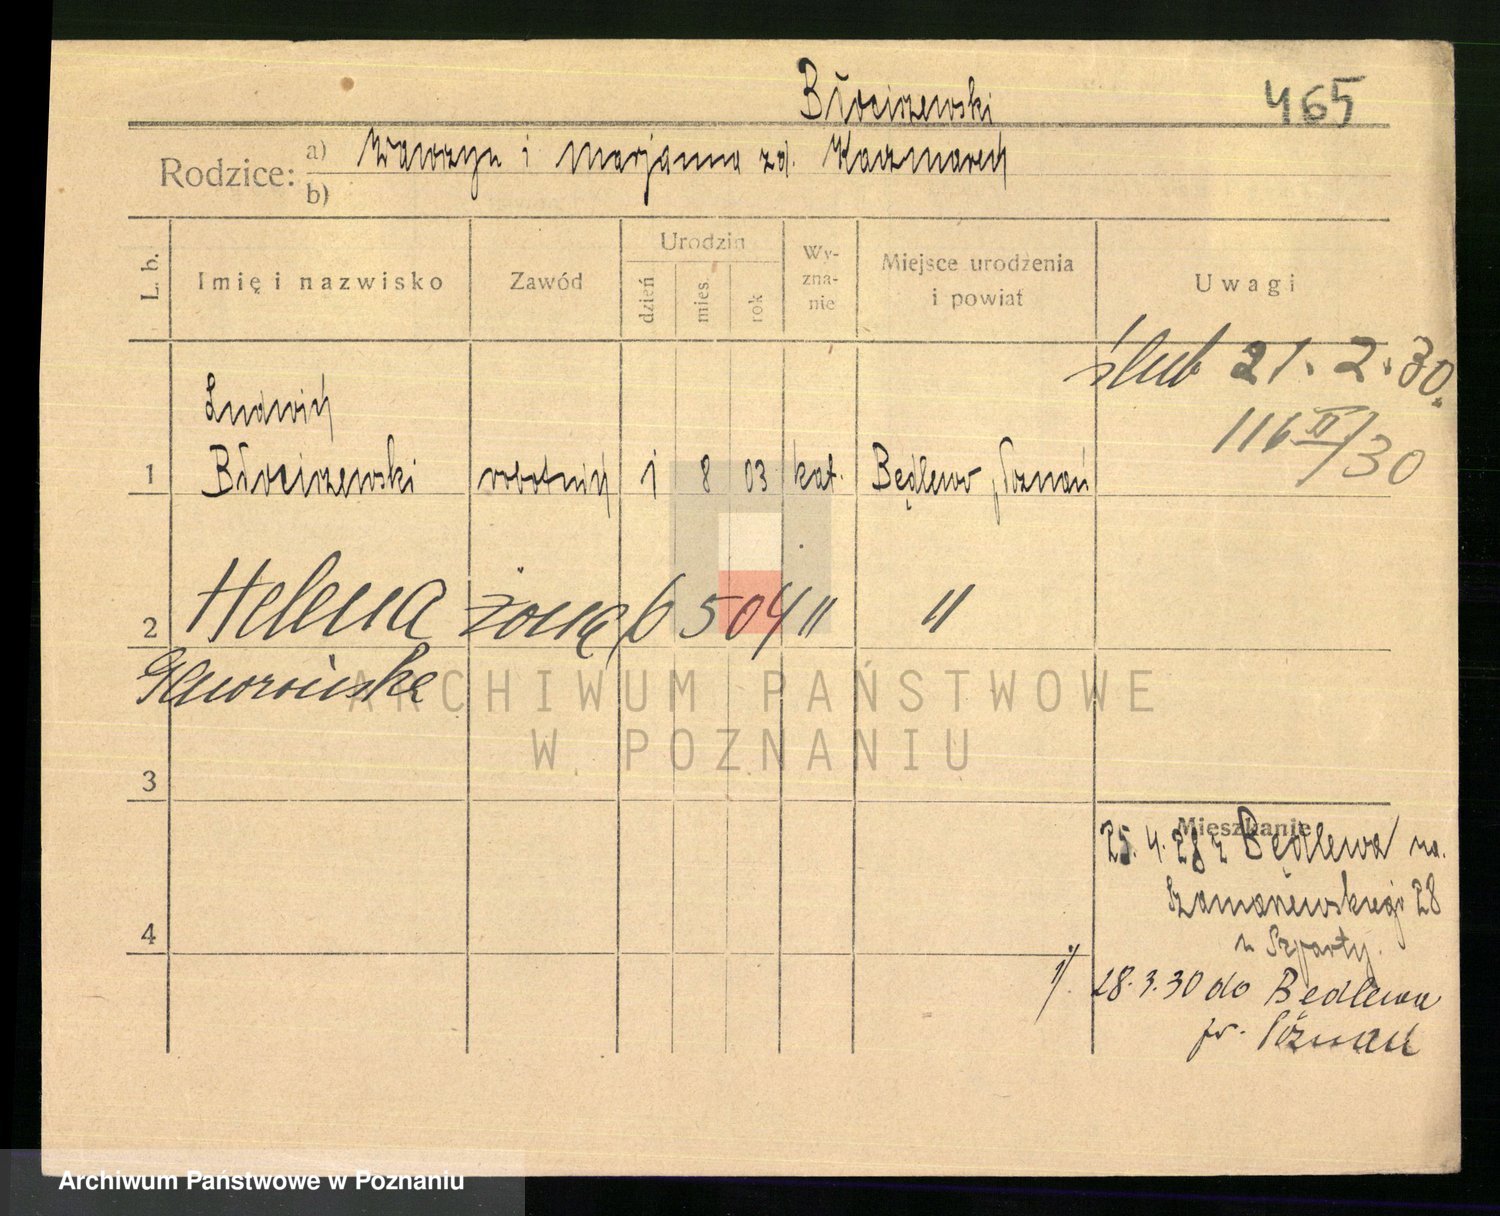 Błociszewski
465
Rodzice: a) Wawrzyn i Marjanna zd. Kaczmarek
b)
L. b.
Imię i nazwisko
Zawód
Urodzin
dzień
mies.
rok
Wy-
zna-
nie
Miejsce urodzenia
i powiat
Uwagi
ślub 21.2.30.
116 II/30
Ludwik
1 Błociszewski robotnik 1 8 03 kat. Będlewo, Poznań
2 Helena żona 6 5 04 " "
3
Mieszkanie
25.4.28 z Będlewa na
28
4
1/. 28.3.30 do Bedlewa
pr. Poznań
ARCHIWUM PAŃSTWOWE
W POZNANIU
Archiwum Państwowe w Poznaniu